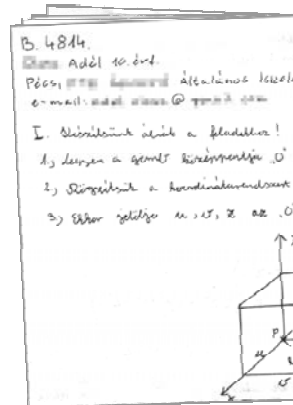 B. 4814.
Adél 10. évf.
Pécs, általános iskola
e-mail: @ gmail.com
I. Készítsünk ábrát a feladathoz!
1, Legyen a gömb középpontja O
2, Rögzítsük a koordinátarendszert
3, Ekkor jelölje u, v, z az O
P
u
v
x